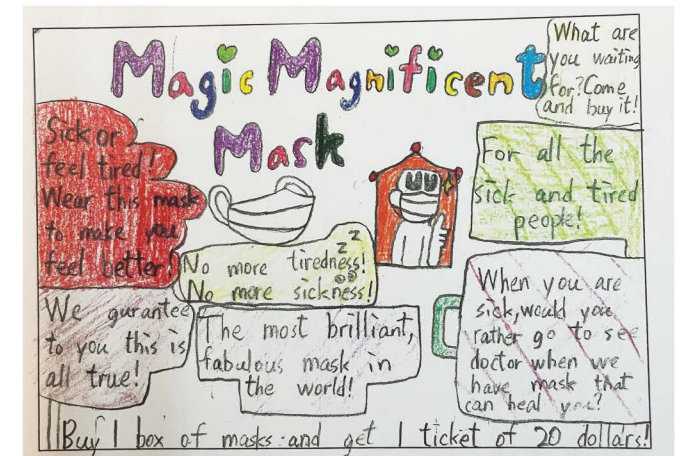 Magic Magnificent
Mask
What are
you waiting
for? Come
and buy it!
Sick or
feel tired!
Wear this mask
to make you
feel better!
For all the
sick and tired
people!
z
z
No more tiredness!
No more sickness!
We gurantee
to you this is
all true!
The most brilliant,
fabulous mask in
the world!
When you are
sick, would you
rather go to see
doctor when we
have mask that
can heal you?
Buy 1 box of masks and get 1 ticket of 20 dollars!